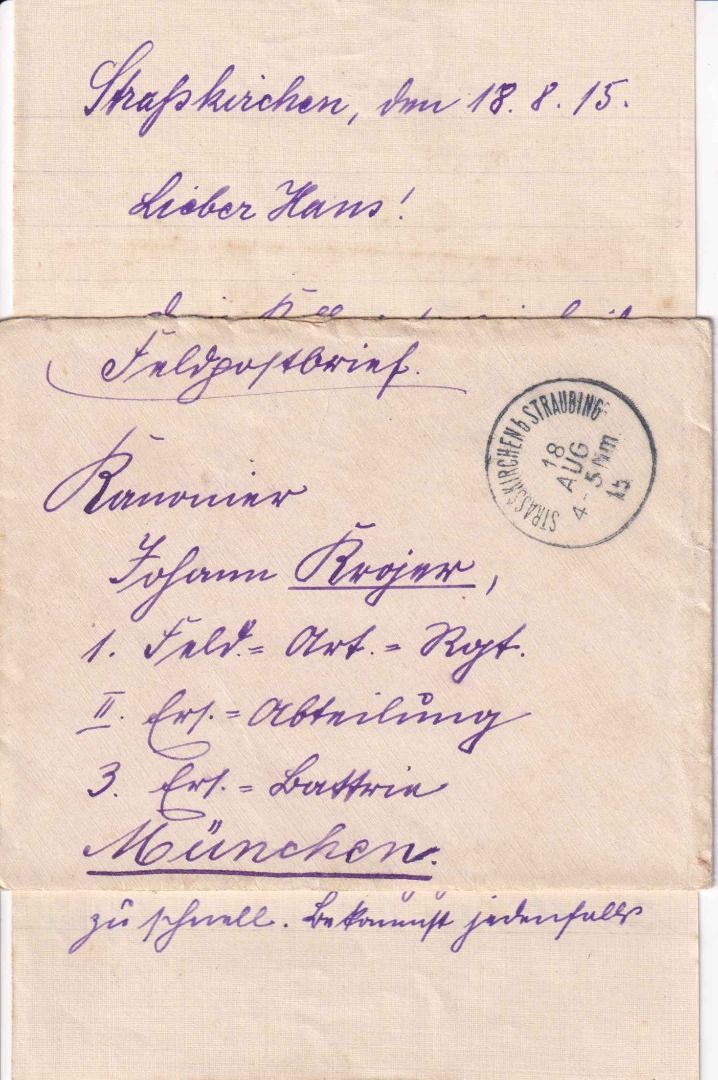 Straßkirchen, den 18. 8. 15.
Lieber Hans!
Feldpostbrief.
STRASSKIRCHEN b STRAUBING
18
AUG
4-5 Nm.
15
Kanonier
Johann Krojer,
1. Feld.= Art.= Rgt.
II. Ers.= Abteilung
3. Ers.= Battrie
München.
zu schnell. Bekommst jedenfalls